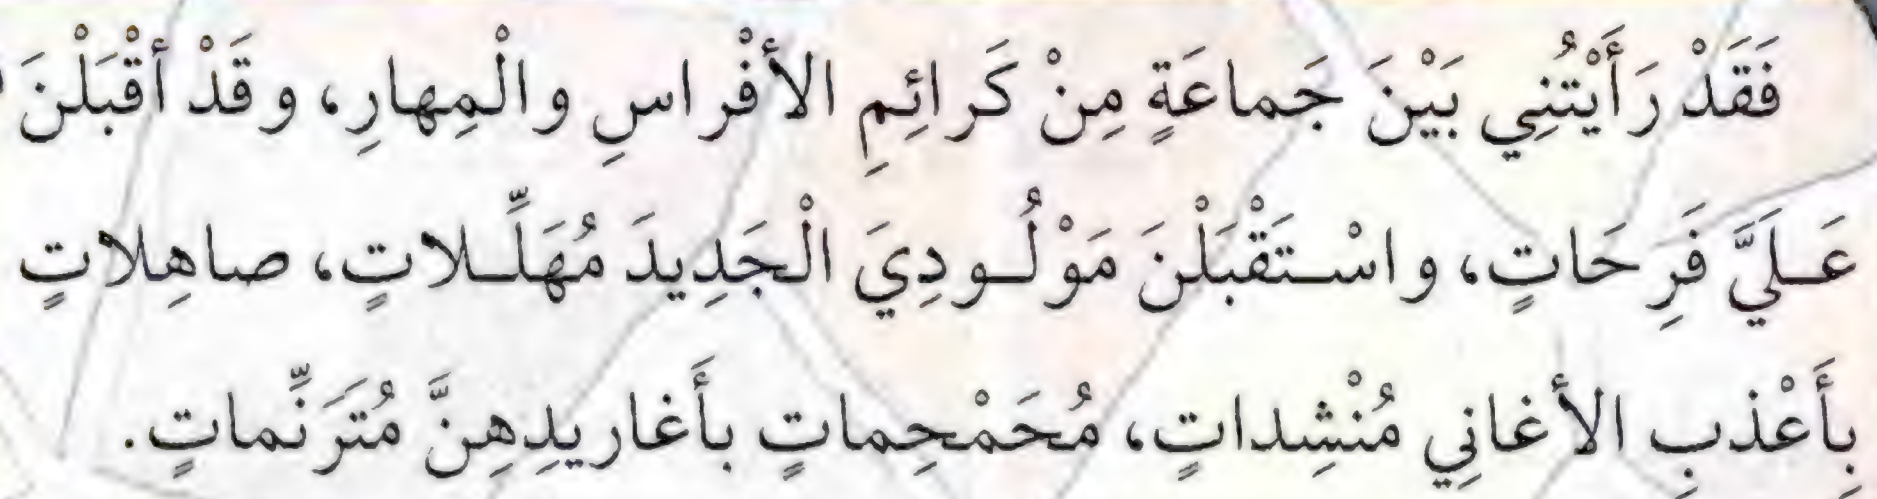 فَقَدْ رَأَيْتُنِي بَيْنَ جَماعَةٍ مِنْ كَرائِمِ الأفْراسِ والْمِهارِ، وقَدْ أقْبَلْنَ
عَلَيَّ فَرِحَاتٍ، واسْتَقْبَلْنَ مَوْلُودِيَ الْجَدِيدَ مُهَلِّلاتٍ، صاهِلاتٍ
بِأَعْذبِ الأغانِي مُنْشِداتٍ، مُحَمْحِماتٍ بأَغاريدِهِنَّ مُتَرَنِّماتٍ.